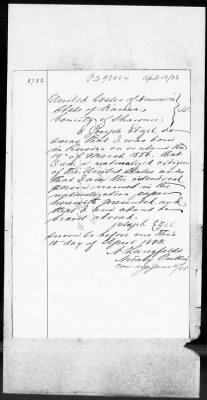 8788
P 293404 April 18/88
United States of America
State of Kansas } SS.
County of Shawnee
I, Joseph Etzel do
swear that I was born
in Russia on or about the
19th of March 1856, that
I am a naturalized citizen
of the United States and
that I am the identical
person named in the
naturalization papers
herewith presented and
that I am about to
travel abroad.
Joseph Etzel
Sworn to before me this
18th day of April 1888.
Notary Public